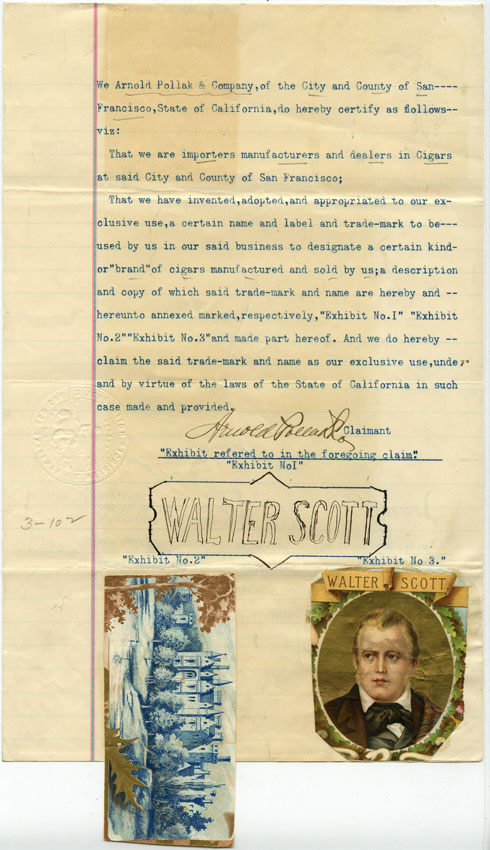 We Arnold Pollak & Company,of the City and County of San----
Francisco,State of California,do hereby certify as fiollows--
viz:
That we are importers manufacturers and dealers in Cigars
at said City and County of San Francisco;
That we have invented,adopted,and appropriated to our ex-
clusive use,a certain name and label and trade-mark to be---
used by us in our said business to designate a certain kind-
or"brand"of cigars manufactured and sold by us;a description
and copy of which said trade-mark and name are hereby and --
hereunto annexed marked,respectively,"Exhibit No.I" "Exhibit
No.2""Exhibit No.3"and made part hereof. And we do hereby --
claim the said trade-mark and name as our exclusive use,under
and by virtue of the laws of the State of California in such
case made and provided.
Arnold Pollak & Co Claimant
"Exhibit refered to in the foregoing claim"
"Exhibit NoI"
WALTER SCOTT
3-102
"Exhibit No.2" "Exhibit No 3."
WALTER SCOTT